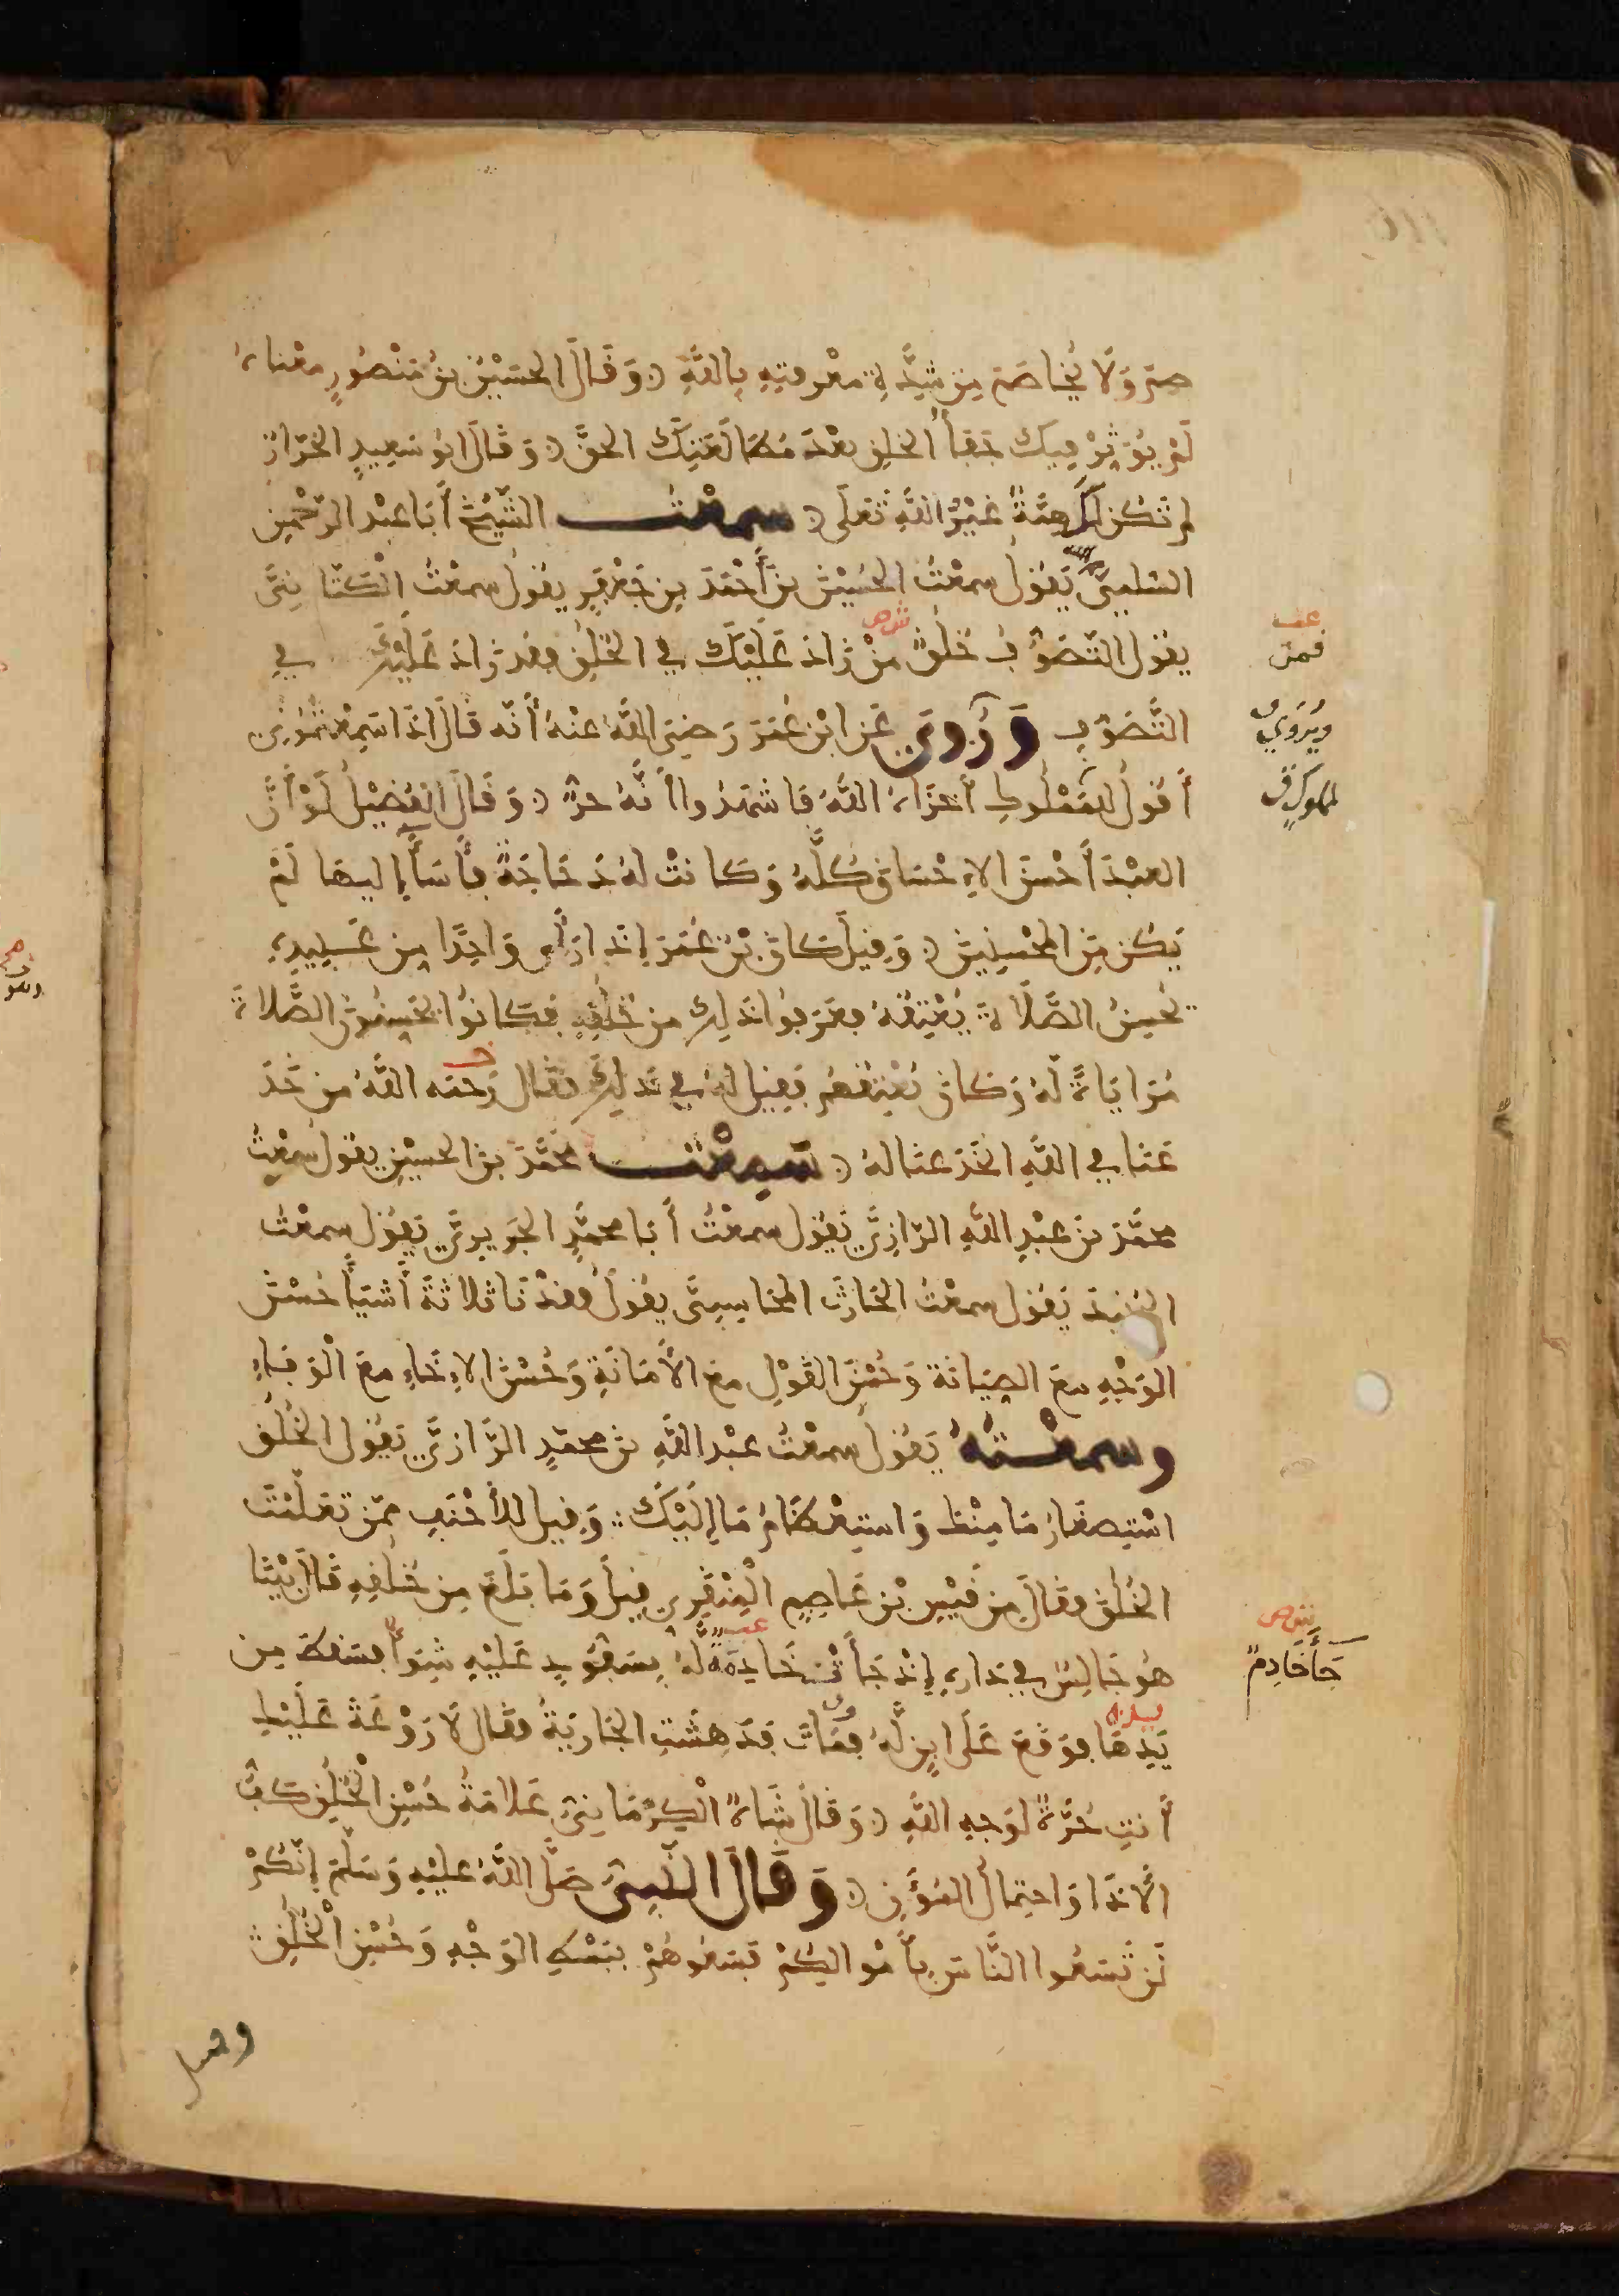 صم ولا يُخاصَم من شدّة معرفته بالله وقال الحسين بن منصور معناه
لم يؤثر فيك جفاء الخلق بعد مطالعتك الحق وقال ابو سعيد الخراز
لم تكن لك همة غير الله تعلى سمعت الشيخ أبا عبد الرحمن
السلمي يقول سمعت الحسين بن أحمد بن جعفر يقول سمعت الكتاني
يقول التصوف خلق من زاد عليك في الخلق فقد زاد عليك في
التصوف وروي عن ابن عمر رضي الله عنه أنه قال اذا سمعتموني
أقول لمملوك أخزاه الله فاشهدوا أنه حر وقال الفضيل لو أن
العبد أحسن الاحسان كله وكانت له دجاجة فأساء إليها لم
يكن من المحسنين وقيل كان بن عمر إذا رأى واحدا من عبيده
يحسن الصلاة يعتقه فعرفوا ذلك من خلقه فكانوا يحسنون الصلاة
مراياة له وكان يعتقهم فقيل له في ذلك فقال رحمه الله من خد
عنا في الله انخدعنا له سمعت محمد بن الحسين يقول سمعت
محمد بن عبد الله الرازي يقول سمعت أبا محمد الجريري يقول سمعت
الجنيد يقول سمعت الحارث المحاسبي يقول فقدنا ثلاثة أشياء حسن
الوجه مع الصيانة وحسن القول مع الأمانة وحسن الاخاء مع الوفاء
وسمعته يقول سمعت عبد الله بن محمد الرازي يقول الخلق
استصغار ما منك واستعظام ما إليك وقيل للأحنف ممن تعلمت
الخلق فقال من قيس بن عاصم المنقري قيل وما بلغ من خلقه قال بينا
هو جالس في داره إذ جاءت خادمة له بسفود عليه شواء فسقط من
يدها فوقع على ابن له فمات فدهشت الجارية فقال لا روعة عليك
أنت حرة لوجه الله وقال شاه الكرماني علامة حسن الخلق كف
الأذا واحتمال المؤن وقال النبي صلى الله عليه وسلم إنكم
لن تسعوا الناس بأموالكم فسعوهم ببسط الوجه وحسن الخلق
وقيل
فمن
ويروى
لمملوك
جاء خادم